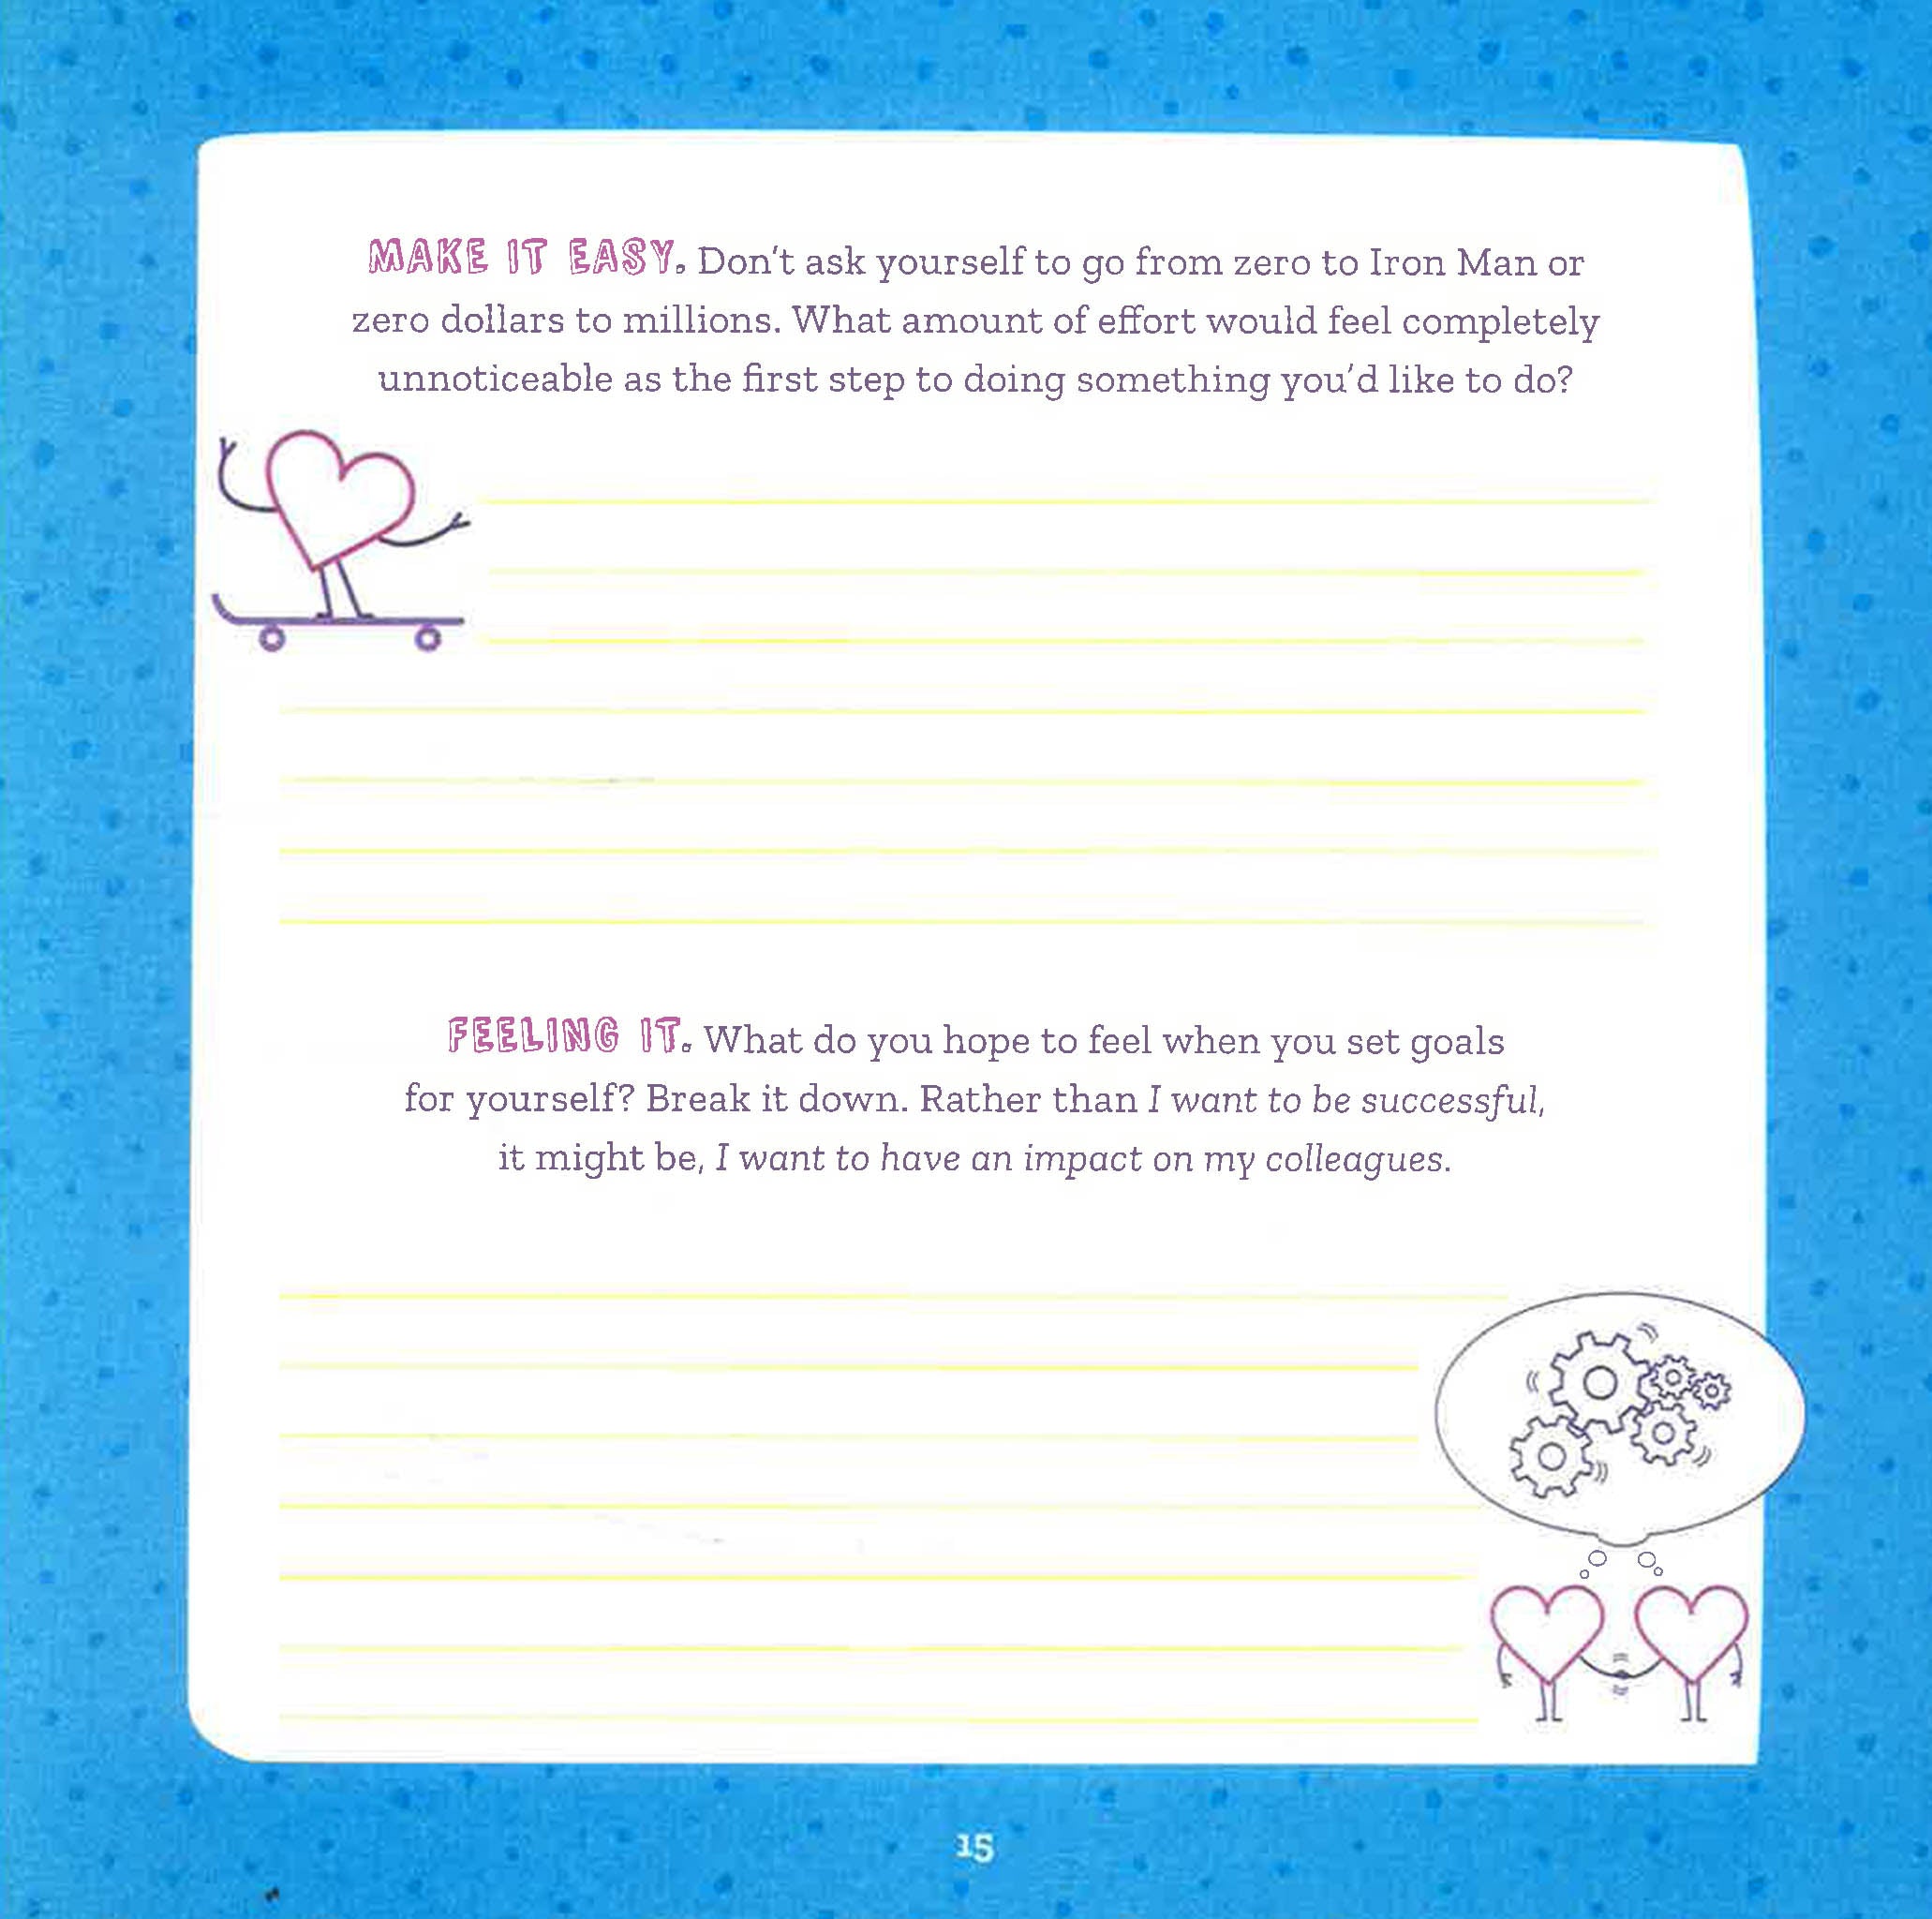 MAKE IT EASY. Don't ask yourself to go from zero to Iron Man or
zero dollars to millions. What amount of effort would feel completely
unnoticeable as the first step to doing something you'd like to do?
FEELING IT. What do you hope to feel when you set goals
for yourself? Break it down. Rather than I want to be successful,
it might be, I want to have an impact on my colleagues.
15